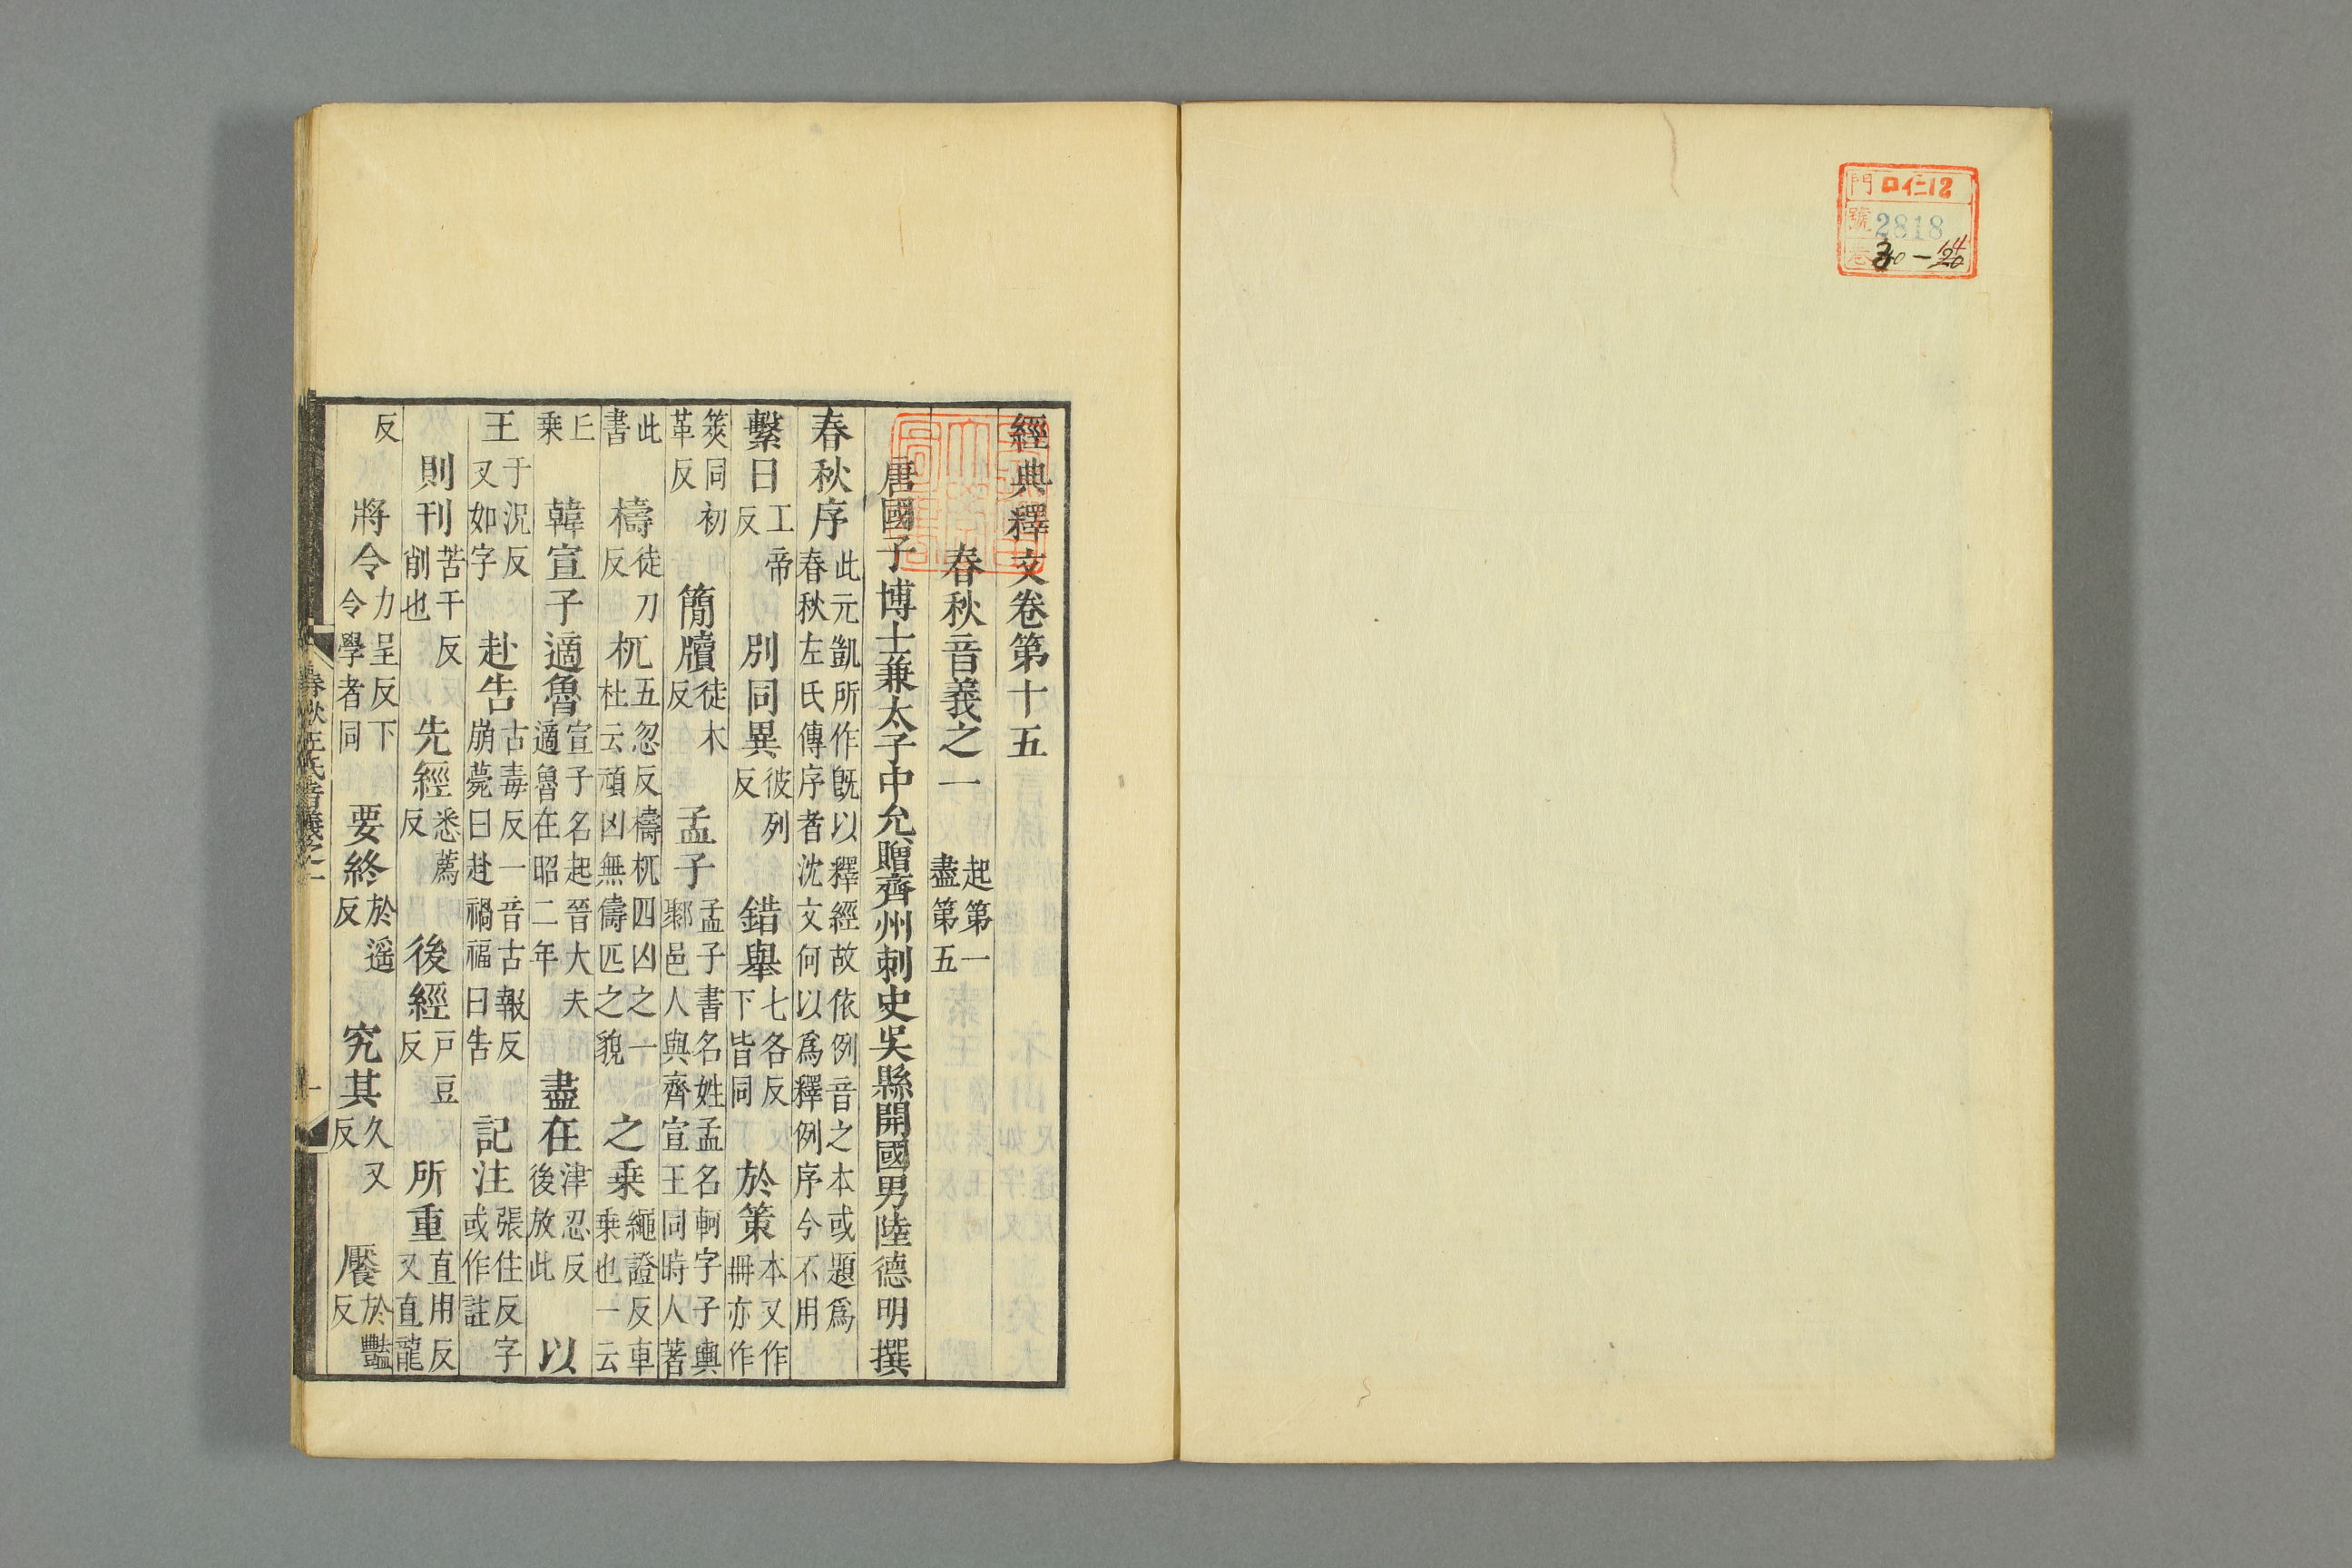 門 ロ仁12
號 2818
卷 30-
經典釋文卷第十五
春秋音義之一 起第一盡第五
唐國子博士兼太子中允贈齊州刺史吳縣開國男陸德明撰
春秋序 此元凱所作旣以釋經故依例音之本或題爲春秋左氏傳序者沈文何以爲釋例序今不用
繫日 工帝反 別同異 彼列反 錯舉 七各反下皆同 於策 本又作冊亦作
筴同初革反 簡牘 徒木反 孟子 孟子書名姓孟名軻字子輿鄒邑人與齊宣王同時人著
此書 檮 徒刀反 杌 五忽反檮杌四凶之一杜云頑凶無儔匹之貌 之乗 繩證反車乗也一云
上乗 韓宣子適魯 宣子名起晉大夫適魯在昭二年 盡在 津忍反後放此 以
王 于況反又如字 赴告 古毒反一音古報反崩薨曰赴禍福曰告 記注 張住反字或作註
則刊 苦干反削也 先經 悉薦反 後經 戸豆反 所重 直用反又直龍
反 將令 力呈反下令學者同 要終 於遥反 究其 久又反 饜 於豔反
春秋左氏音義之一 一